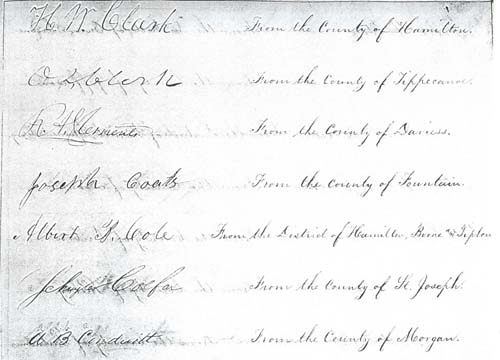 H. W. Clark From the County of Hamilton.
O L Clark From the County of Tippecanoe.
Clements From the County of Daviess.
Joseph Coats From the County of Fountain.
Albert Cole From the District of Hamilton, Boone and Tipton
Schuyler Colfax From the County of St. Joseph.
A B Conduitt From the County of Morgan.